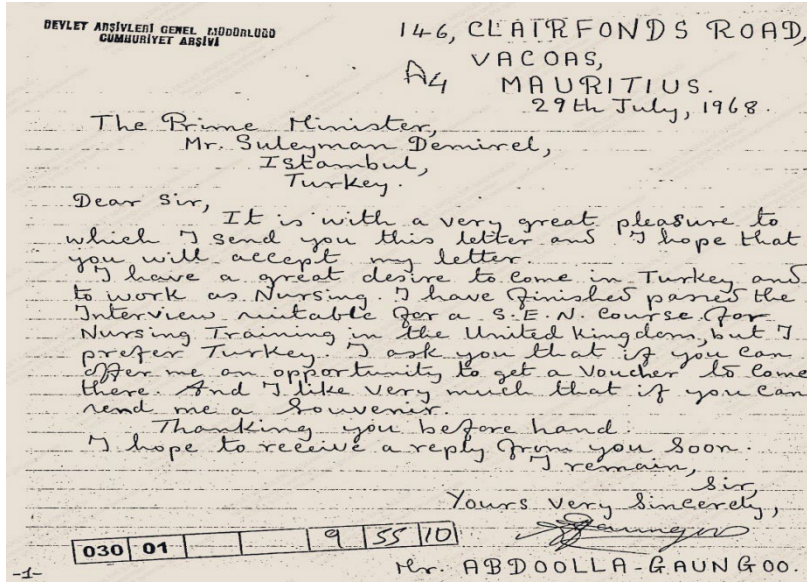 DEVLET ARŞİVLERİ GENEL MÜDÜRLÜĞÜ
CUMHURİYET ARŞİVİ
146, CLAIRFONDS ROAD,
VACOAS,
A4
MAURITIUS.
29th July, 1968.
The Prime Minister,
Mr. Suleyman Demirel,
Istambul,
Turkey.
Dear Sir,
It is with a very great pleasure to
which I send you this letter and I hope that
you will accept my letter.
I have a great desire to come in Turkey and
to work as Nursing. I have finished passed the
Interview suitable for a S.E.N. Course for
Nursing Training in the United Kingdom, but I
prefer Turkey. I ask you that if you can
offer me an opportunity to get a Voucher to come
there. And I like very much that if you can
send me a Souvenir.
Thanking you before hand.
I hope to receive a reply from you soon.
I remain,
Sir,
Yours Very Sincerely,
Mr. ABDOOLLA-GAUNGOO.
030 01 9 55 10
-1-